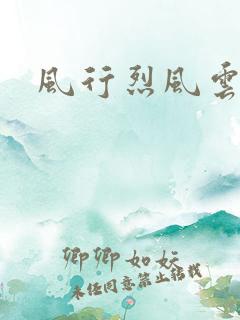 風行烈風雲
卿卿如妘
未经同意禁止转载